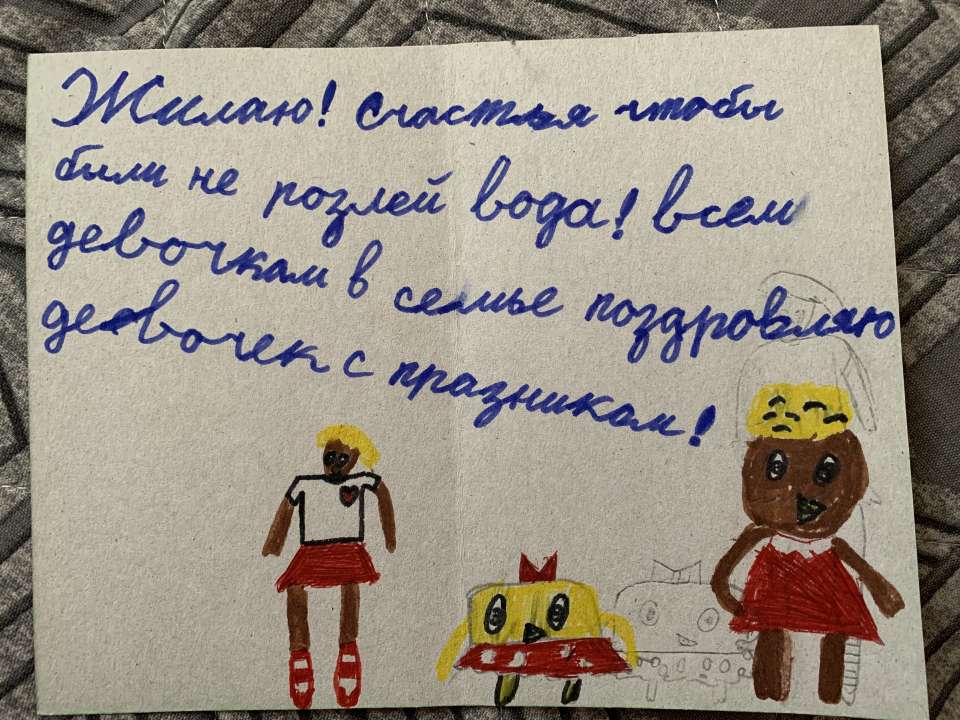 Жилаю! счастья чтобы
были не розлей вода! всем
девочкам в семье поздровляю
девочек с празником!